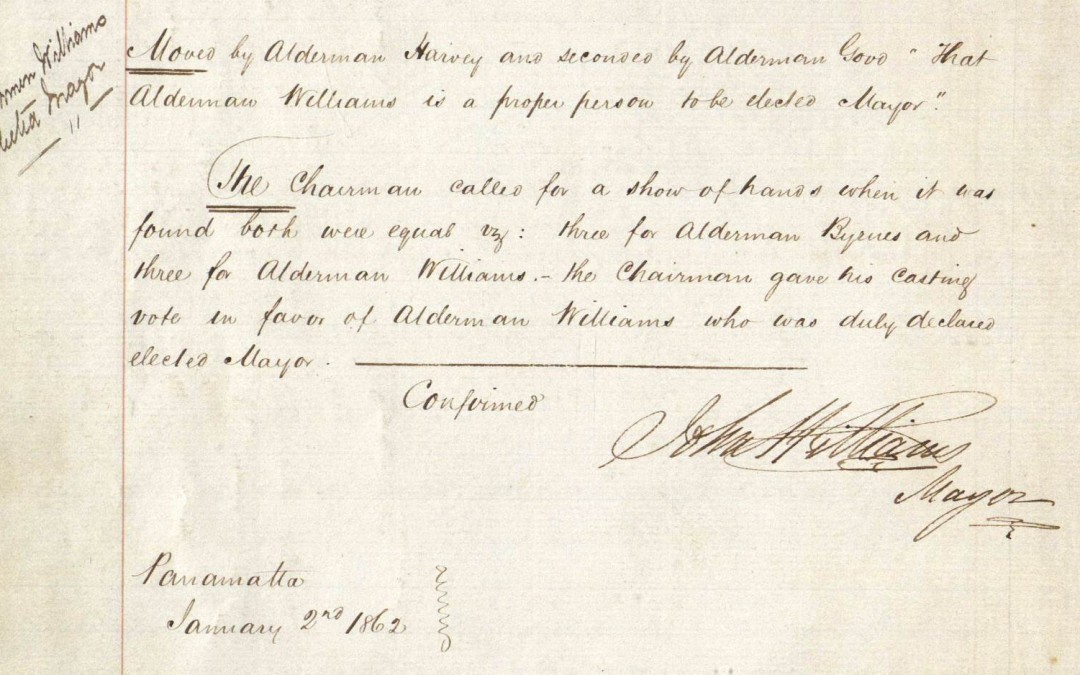 Williams
Mayor
"
Moved by Alderman Harvey and seconded by Alderman Good "That
Alderman Williams is a proper person to be elected Mayor".
The Chairman called for a show of hands when it was
found both were equal viz: three for Alderman Byrnes and
three for Alderman Williams. – the Chairman gave his casting
vote in favor of Alderman Williams who was duly declared
elected Mayor.
Confirmed
John Williams
Mayor
Parramatta
January 2nd 1862